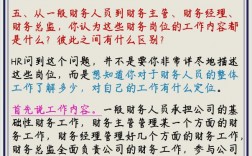 五、从一般财务人员到财务主管、财务经理、
财务总监，你认为这些财务岗位的工作内容都
是什么？彼此之间有什么区别？
HR问到这个问题，并不是要你非常详尽地描述
这些岗位，而是想知道你对于财务人员的整体
工作了解多少，对自己的工作有什么定位。
首先说工作内容。一般财务人员承担公司的基
础性财务工作，财务主管管理某一个方面的财
务工作，财务经理管理好几个方面的财务工作，
财务总监全面负责公司的财务工作，参与公司